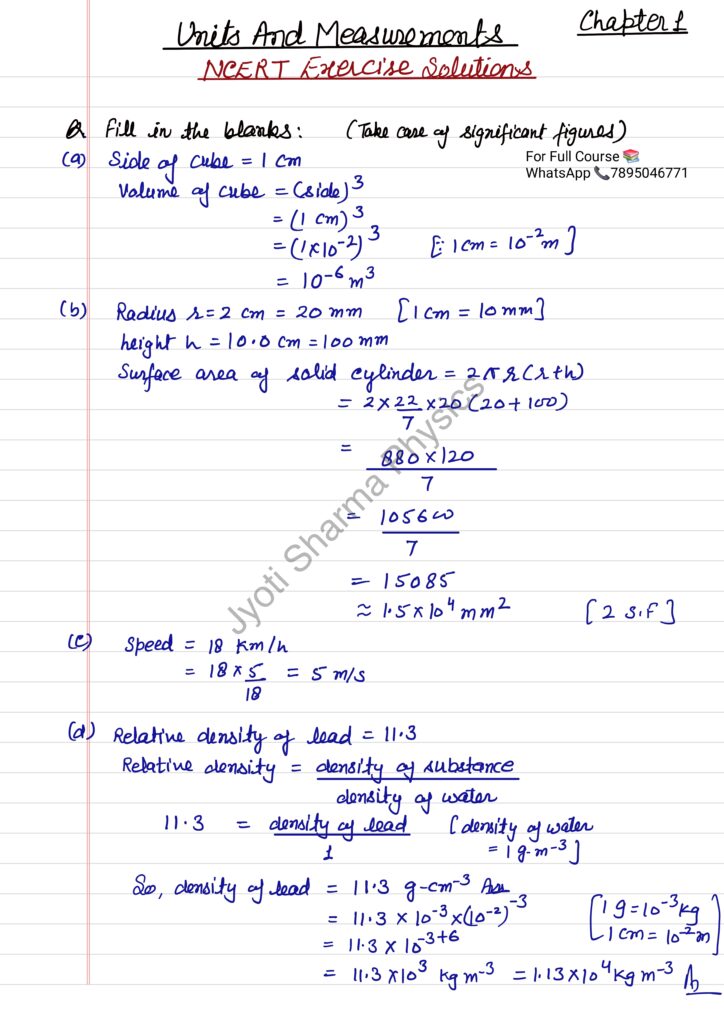 Chapter 1
Units And Measurements
NCERT Exercise Solutions
Q Fill in the blanks: (Take care of significant figures)
For Full Course 📚
WhatsApp 📞7895046771
(a) Side of cube = 1 cm
Volume of cube = (side)³
= (1 cm)³
= (1×10⁻²)³ [∵ 1cm = 10⁻²m]
= 10⁻⁶ m³
(b) Radius r = 2 cm = 20 mm [1 cm = 10 mm]
height h = 10.0 cm = 100 mm
Surface area of solid cylinder = 2πr(r+h)
= 2 × 22/7 × 20 (20 + 100)
= 880 × 120 / 7
= 105600 / 7
= 15085
≈ 1.5×10⁴ mm² [2 S.F]
Jyoti Sharma Physics
(c) Speed = 18 Km/h
= 18 × 5/18 = 5 m/s
(d) Relative density of lead = 11.3
Relative density = density of substance / density of water
11.3 = density of lead / 1 [density of water
= 1 g-m⁻³]
So, density of lead = 11.3 g-cm⁻³ Ans
= 11.3 × 10⁻³ × (10⁻²)⁻³ [1 g = 10⁻³ kg
= 11.3 × 10⁻³⁺⁶ 1 cm = 10⁻² m]
= 11.3 × 10³ kg m⁻³ = 1.13×10⁴ kg m⁻³